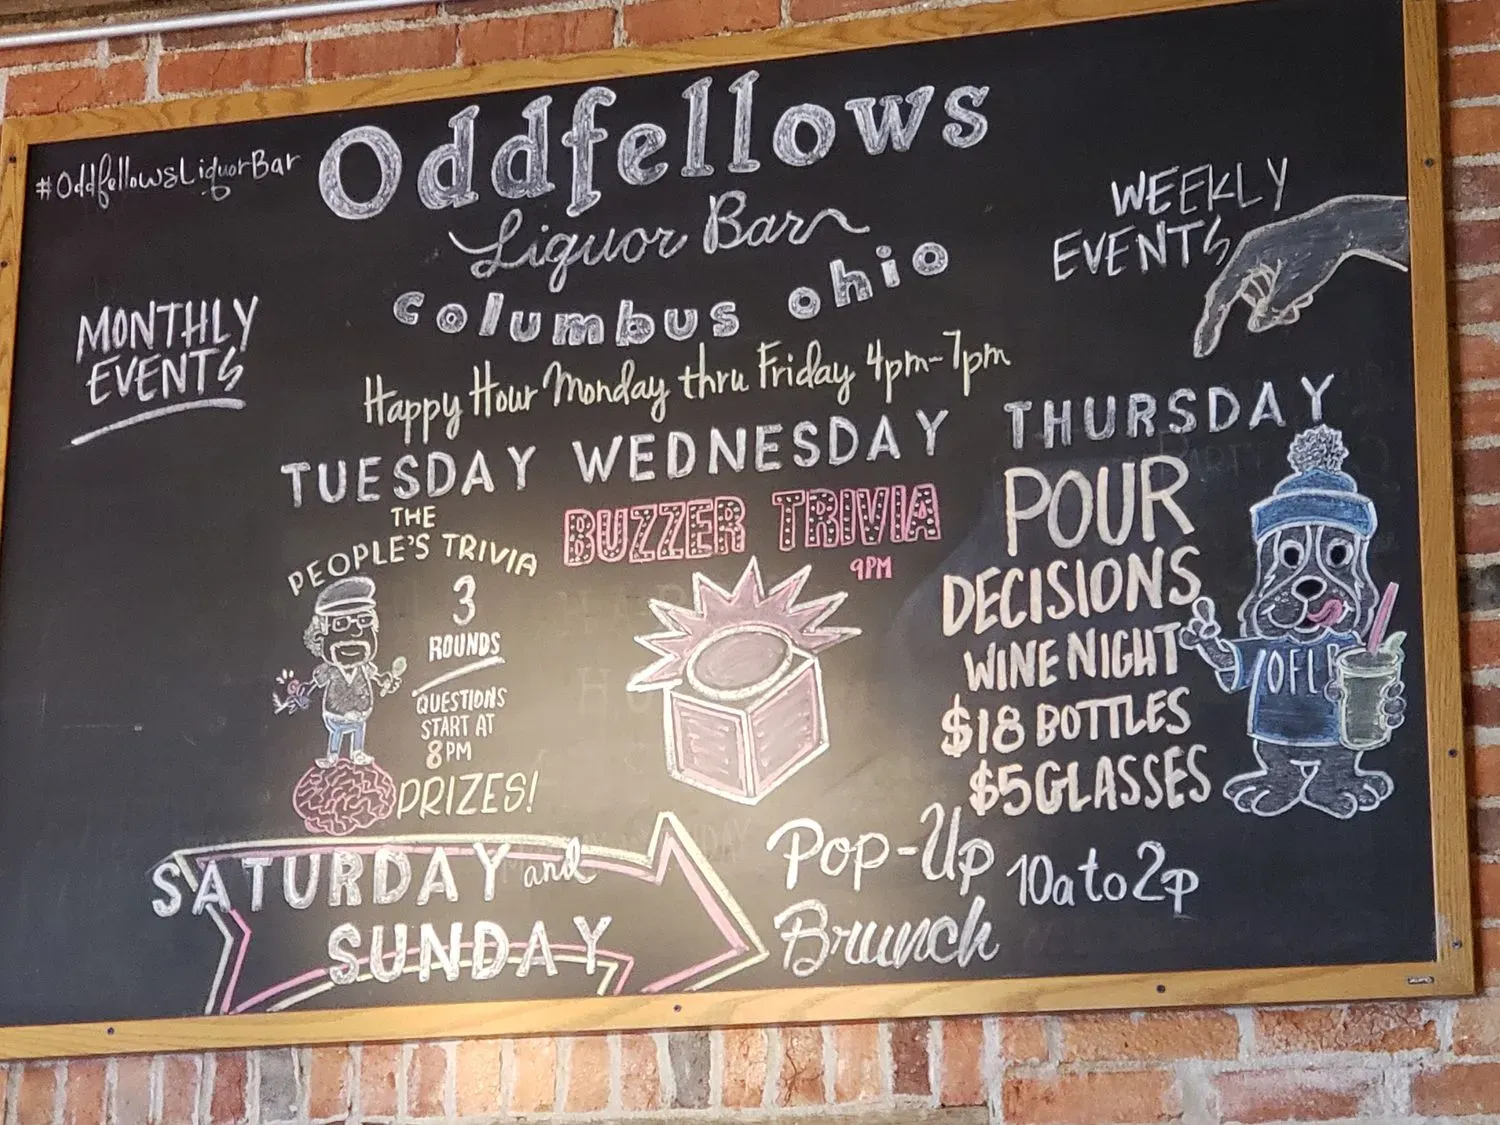 #OddfellowsLiquorBar
Oddfellows
Liquor Bar
columbus ohio
Happy Hour Monday thru Friday 4pm-7pm
MONTHLY
EVENTS
WEEKLY
EVENTS
TUESDAY
THE
PEOPLE'S TRIVIA
3
ROUNDS
QUESTIONS
START AT
8PM
PRIZES!
WEDNESDAY
BUZZER TRIVIA
9PM
THURSDAY
POUR
DECISIONS
WINE NIGHT
$18 BOTTLES
$5 GLASSES
OFLB
SATURDAY and
SUNDAY
Pop-Up
Brunch
10a to 2p